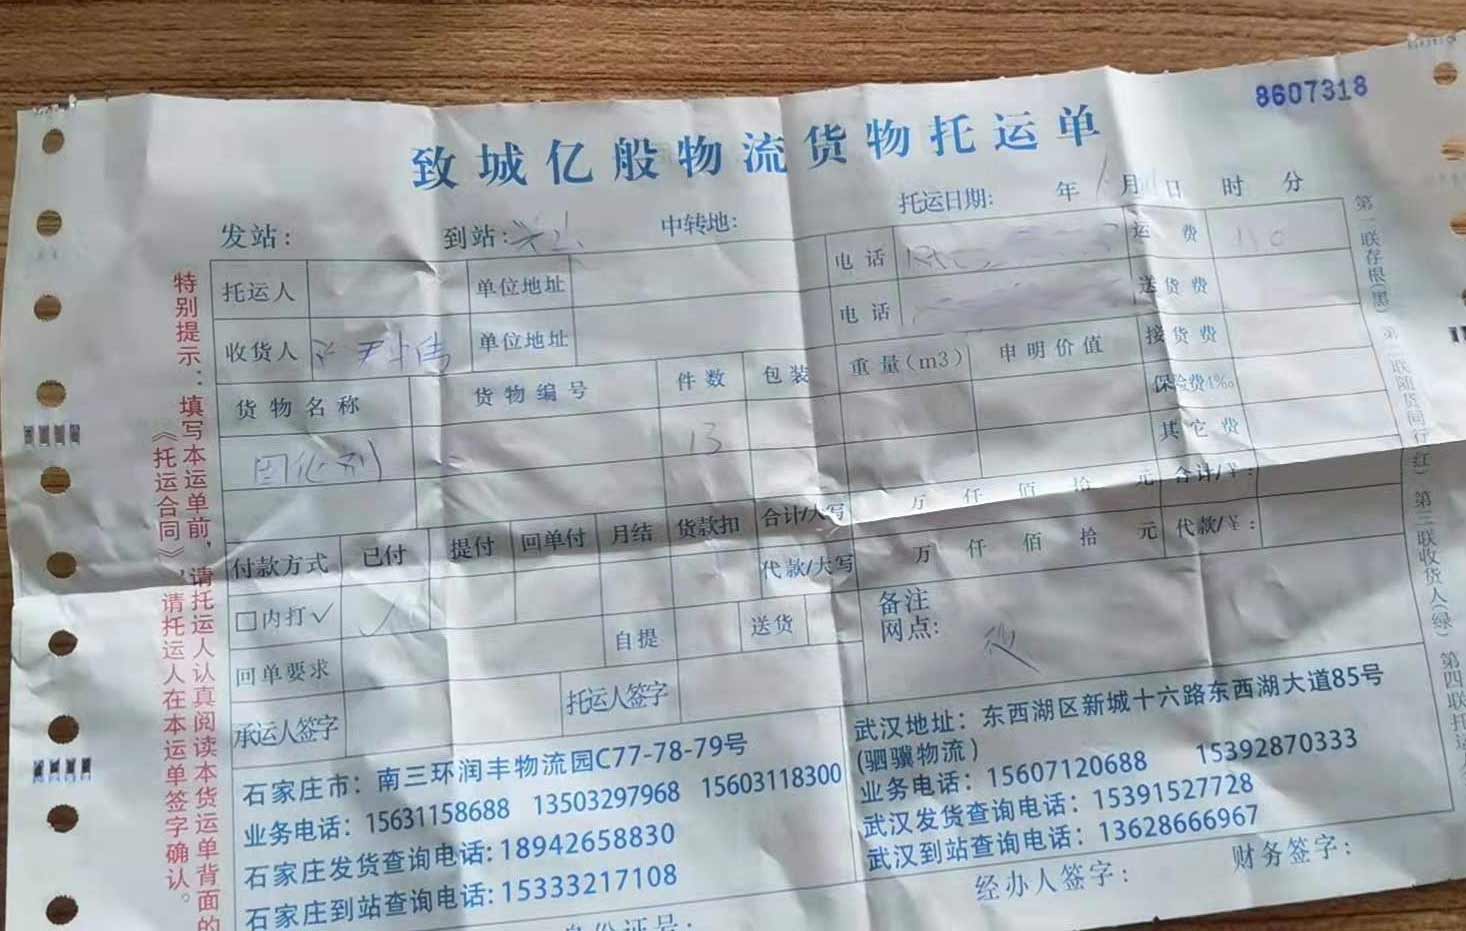 8607318
致城亿般物流货物托运单
托运日期: 年 月 日 时 分
发站: 到站: 中转地:
托运人 单位地址 电话 运费
收货人 单位地址 电话 送货费
接货费
货物名称 货物编号 件数 包装 重量(m3) 申明价值
保险费1‰
固化剂 13 其它费
合计/大写 万 仟 佰 拾 元 合计/¥:
付款方式 已付 提付 回单付 月结 货款扣
代款/大写 万 仟 佰 拾 元 代款/¥:
□内打✓
回单要求 自提 送货
备注
网点:
承运人签字 托运人签字
石家庄市: 南三环润丰物流园C77-78-79号
业务电话: 15631158688 13503297968 15603118300
石家庄发货查询电话: 18942658830
石家庄到站查询电话: 15333217108
武汉地址: 东西湖区新城十六路东西湖大道85号
(驷骥物流)
业务电话: 15607120688 15392870333
武汉发货查询电话: 15391527728
武汉到站查询电话: 13628666967
身份证号:
经办人签字: 财务签字:
特别提示: 填写本运单前, 请托运人认真阅读本货运单背面的
《托运合同》, 请托运人在本运单签字确认。
第一联存根(黑) 第二联随货同行(红) 第三联收货人(绿) 第四联托运